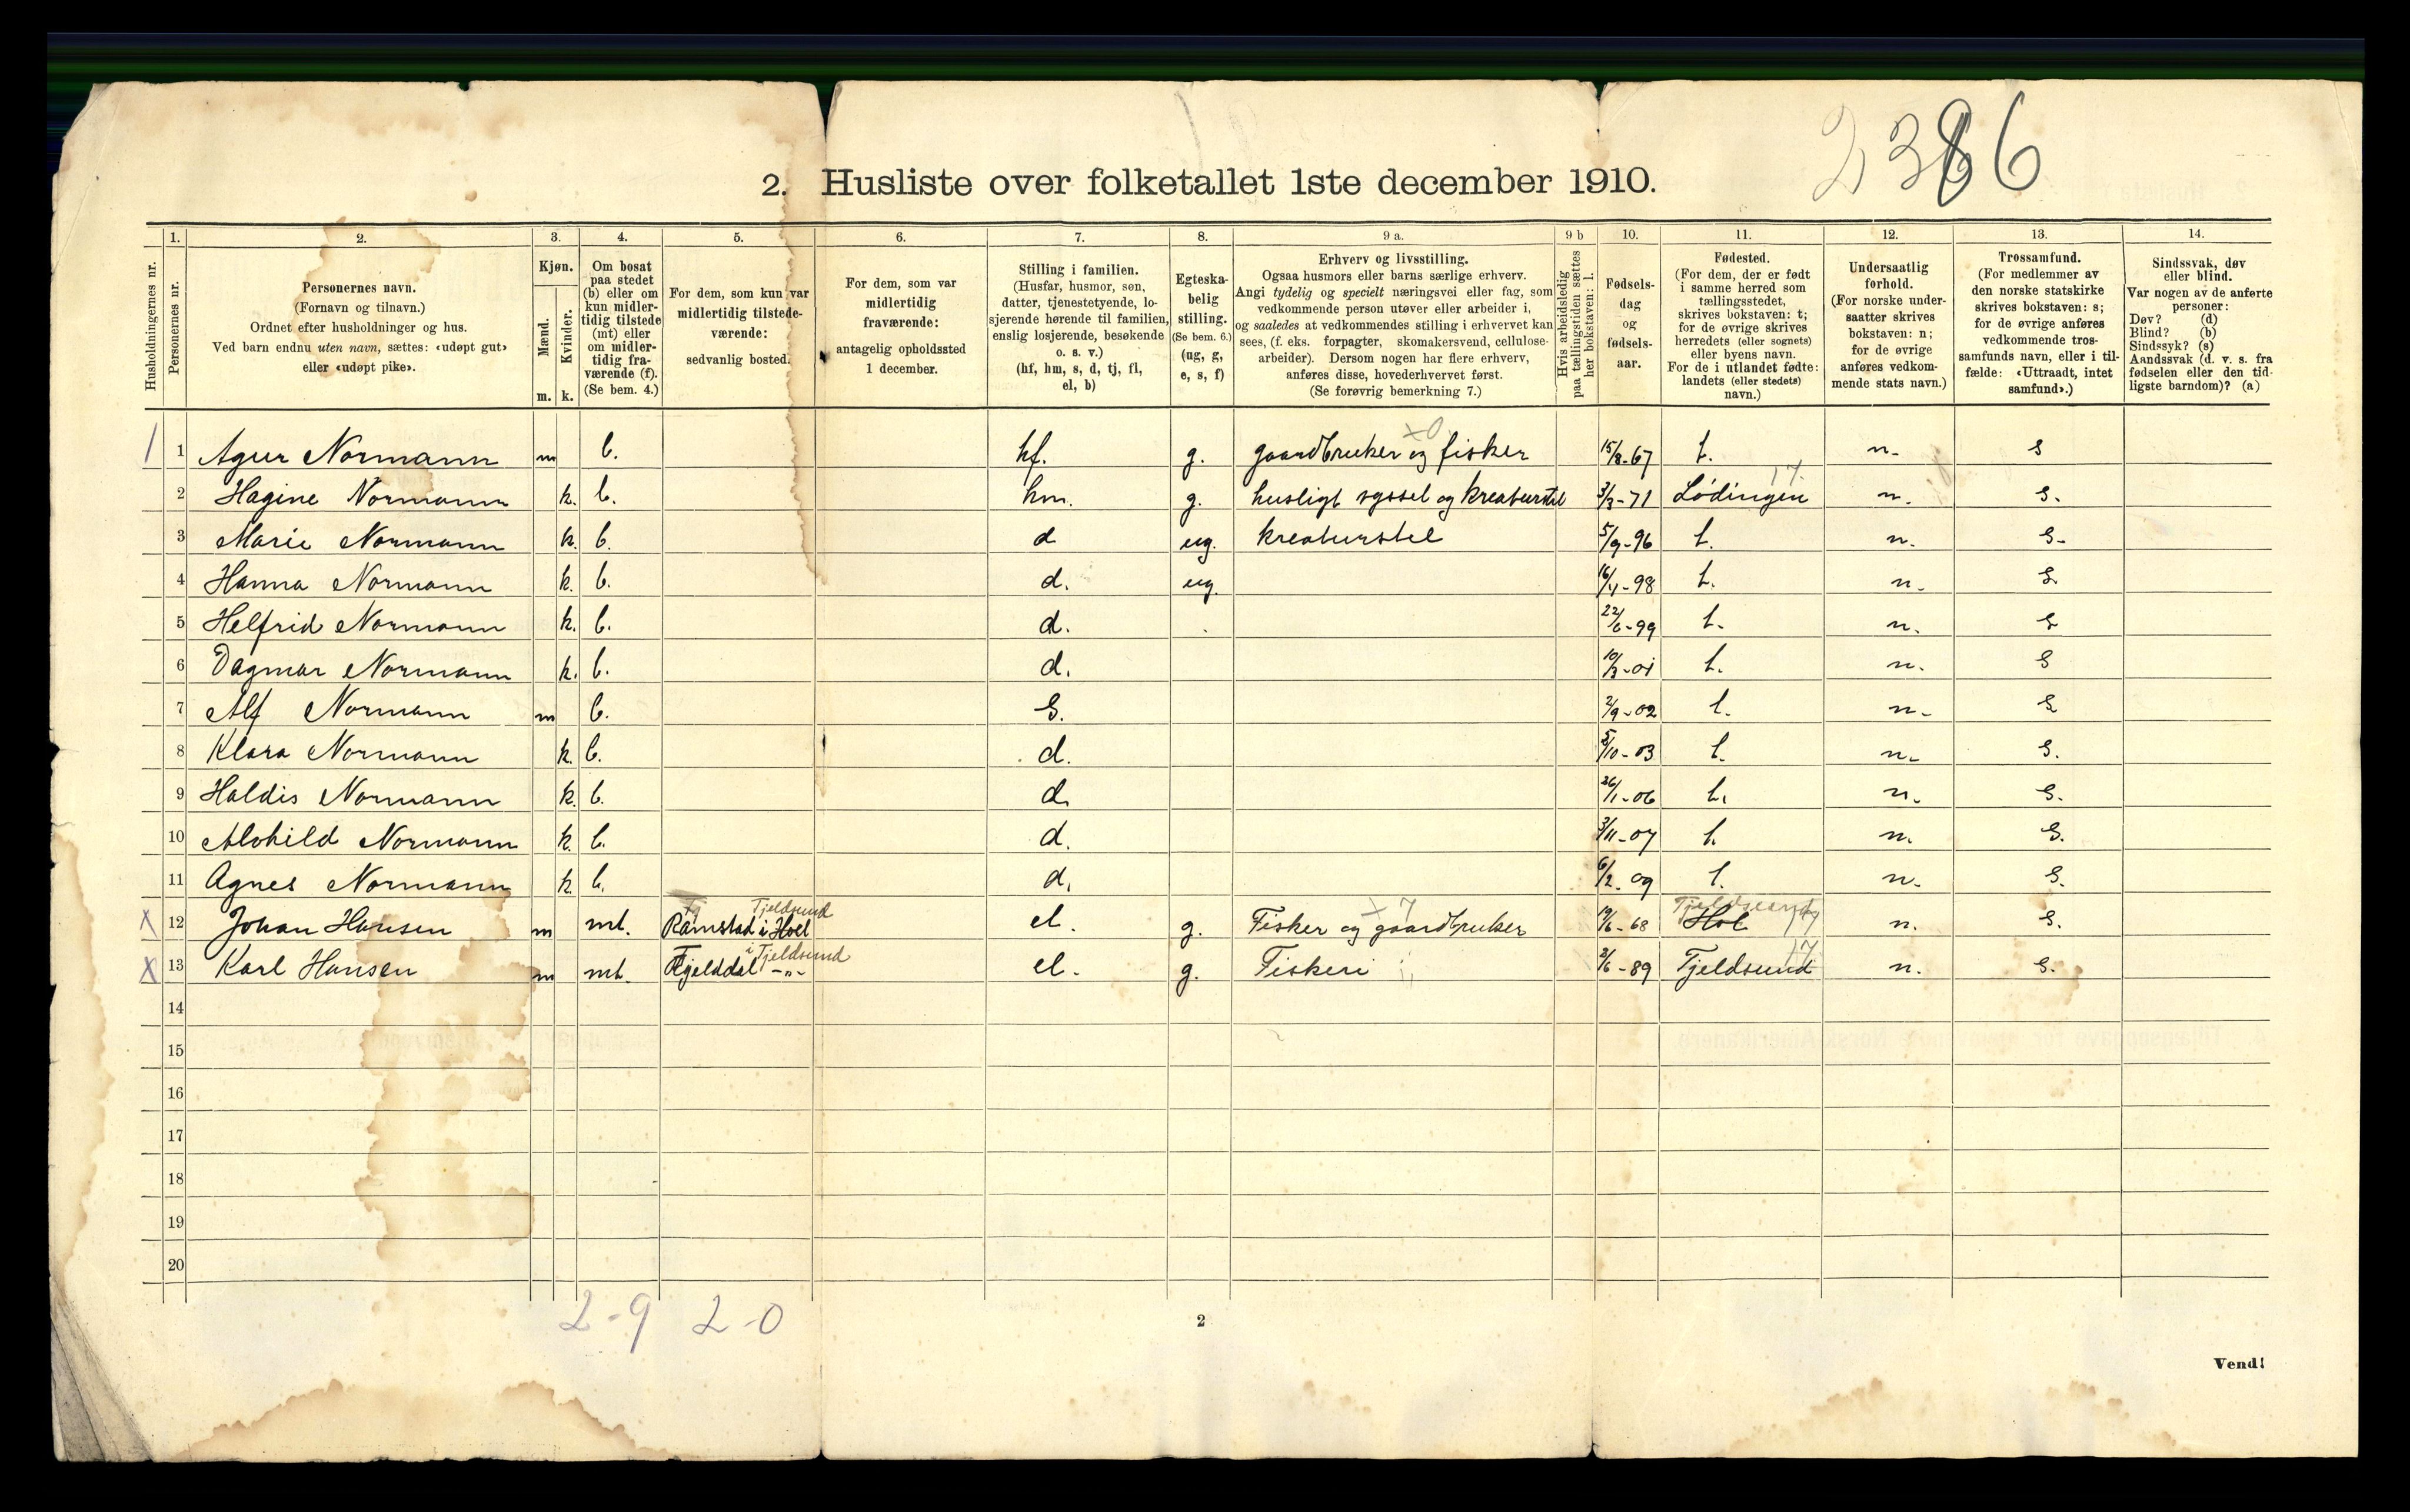 2386
2. Husliste over folketallet 1ste december 1910.
Husholdningernes nr.
1. Personernes nr.
2. Personernes navn.
(Fornavn og tilnavn.)
Ordnet efter husholdninger og hus.
Ved barn endnu uten navn, sættes: «udøpt gut»
eller «udøpt pike».
3. Kjøn.
Mænd. m.
Kvinder. k.
4. Om bosat
paa stedet
(b) eller om
kun midler-
tidig tilstede
(mt) eller
om midler-
tidig fra-
værende (f).
(Se bem. 4.)
5. For dem, som kun var
midlertidig tilstede-
værende:
sedvanlig bosted.
6. For dem, som var
midlertidig
fraværende:
antagelig opholdssted
1 december.
7. Stilling i familien.
(Husfar, husmor, søn,
datter, tjenestetyende, lo-
sjerende hørende til familien,
enslig losjerende, besøkende
o. s. v.)
(hf, hm, s, d, tj, fl,
el, b)
8. Egteska-
belig
stilling.
(Se bem. 6.)
(ug, g,
e, s, f)
9 a. Erhverv og livsstilling.
Ogsaa husmors eller barns særlige erhverv.
Angi tydelig og specielt næringsvei eller fag, som
vedkommende person utøver eller arbeider i,
og saaledes at vedkommendes stilling i erhvervet kan
sees, (f. eks. forpagter, skomakersvend, cellulose-
arbeider). Dersom nogen har flere erhverv,
anføres disse, hovederhvervet først.
(Se forøvrig bemerkning 7.)
9 b Hvis arbeidsledig
paa tællingstiden sættes
her bokstaven: l.
10. Fødsels-
dag
og
fødsels-
aar.
11. Fødested.
(For dem, der er født
i samme herred som
tællingsstedet,
skrives bokstaven: t;
for de øvrige skrives
herredets (eller sognets)
eller byens navn.
For de i utlandet fødte:
landets (eller stedets)
navn.)
12. Undersaatlig
forhold.
(For norske under-
saatter skrives
bokstaven: n;
for de øvrige
anføres vedkom-
mende stats navn.)
13. Trossamfund.
(For medlemmer av
den norske statskirke
skrives bokstaven: s;
for de øvrige anføres
vedkommende tros-
samfunds navn, eller i til-
fælde: «Uttraadt, intet
samfund».)
14. Sindssvak, døv
eller blind.
Var nogen av de anførte
personer:
Døv? (d)
Blind? (b)
Sindssyk? (s)
Aandssvak (d. v. s. fra
fødselen eller den tid-
ligste barndom)? (a)
1 1 Agur Normann m b. hf. g. gaardbruker og fisker x0 15/8-67 t. n. s
2 Hagine Normann k. b. hm. g. husligt syssel og kreaturstel 3/3-71 Lødingen 17. n. s.
3 Marie Normann k. b. d ug. kreaturstel 5/9-96 t. n. s.
4 Hanna Normann k. b. d. ug. 16/4-98 t. n. s
5 Helfrid Normann k. b. d. 22/6-99 t. n. s
6 Dagmar Normann k. b. d. 10/3-01 t. n. s
7 Alf Normann m b. s. 2/9-02 t. n. s
8 Klara Normann k. b. d. 5/10-03 t. n. s.
9 Haldis Normann k. b. d. 26/1-06 t. n. s.
10 Alvhild Normann k. b. d. 3/11-07 t. n. s.
11 Agnes Normann k. b. d. 6/2-09 t. n. s.
x 12 Johan Hansen m mt. Ramstad i Hoel Tjeldsund el. g. Fisker og gaardbruker x 7 19/6-68 Hol Tjeldsund 17 n. s.
x 13 Karl Hansen m mt. Fjelddal -"- i Tjeldsund el. g. Fiskeri 3/6-89 Tjeldsund 17 n. s.
14
15
16
17
18
19
20
2-9 2-0
2
Vend!